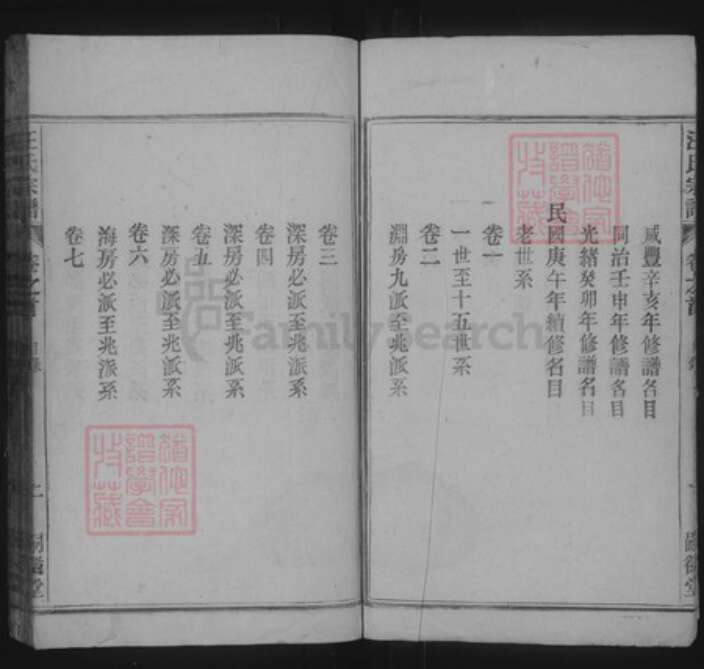 咸豐辛亥年修譜名目
同治壬申年修譜名目
光緒癸卯年修譜名目
民國庚午年續修名目
老世系
卷一
一世至十五世系
卷二
淵房九派至兆派系
卷三
深房必派至兆派系
卷四
深房必派至兆派系
卷五
深房必派至兆派系
卷六
海房必派至兆派系
卷七
汪氏宗譜
卷之首
目錄
FamilySearch